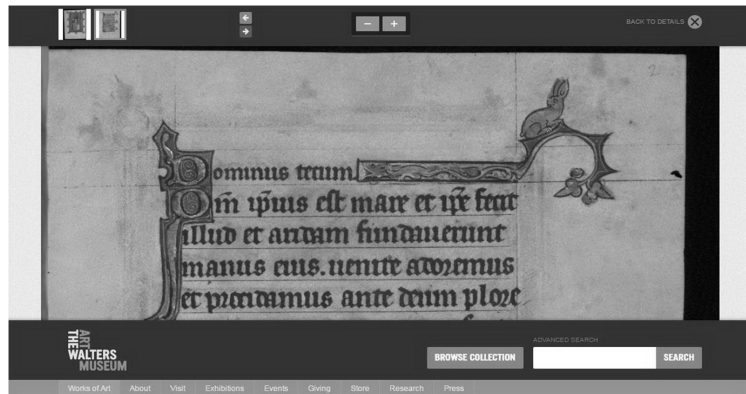 BACK TO DETAILS
2
Dominus tecum
Qm̄ ip̄ius est mare et ip̄e fecit
illud et aridam fundauerunt
manus eius. uenite adoremus
et procidamus ante deum plore
THE WALTERS ART MUSEUM
BROWSE COLLECTION
ADVANCED SEARCH
SEARCH
Works of Art About Visit Exhibitions Events Giving Store Research Press